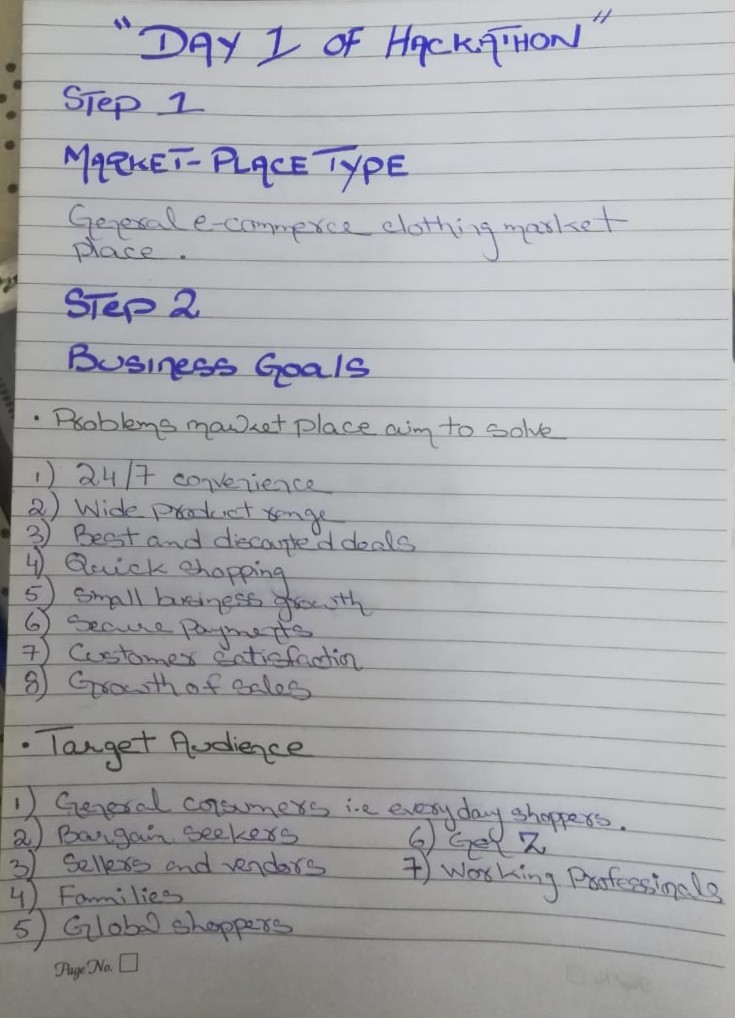 "DAY 1 OF HACKATHON"
Step 1
MARKET-PLACE TYPE
General e-commerce clothing market
place.
Step 2
Business Goals
• Problems market place aim to solve
1) 24/7 convenience
2) Wide product range
3) Best and discounted deals
4) Quick shopping
5) Small business growth
6) Secure Payments
7) Customer satisfaction
8) Growth of sales
• Target Audience
1) General consumers i.e everyday shoppers.
2) Bargain seekers
3) Sellers and vendors
4) Families
5) Global shoppers
6) Gen Z
7) Working Professinals
Page No.